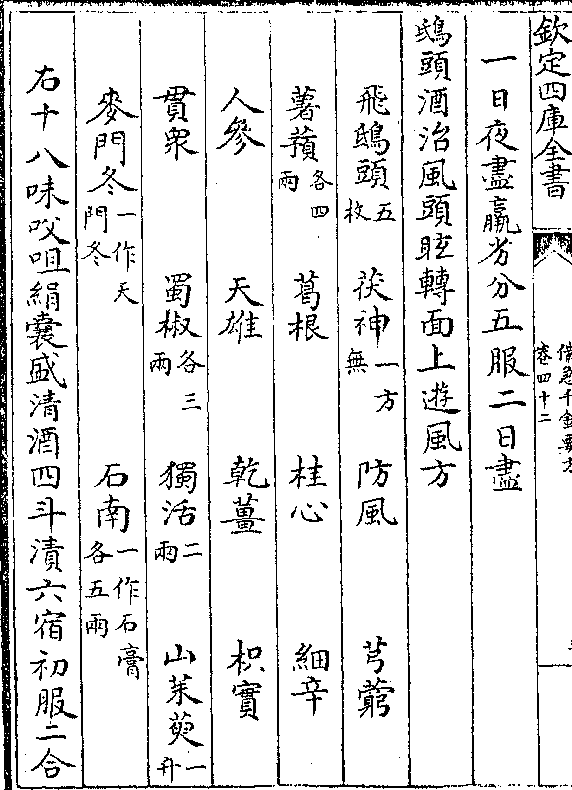 欽定四庫全書 備急千金要方 卷四十二
一日夜盡羸劣分五服二日盡
鴟頭酒治風頭眩轉面上遊風方
飛鴟頭五枚 茯神一方無 防風 芎藭
薯蕷各四兩 葛根 桂心 細辛
人參 天雄 乾薑 枳實
貫衆 蜀椒各三兩 獨活二兩 山茱萸一升
麥門冬一作天門冬 石南一作石膏各五兩
右十八味㕮咀絹囊盛清酒四斗漬六宿初服二合